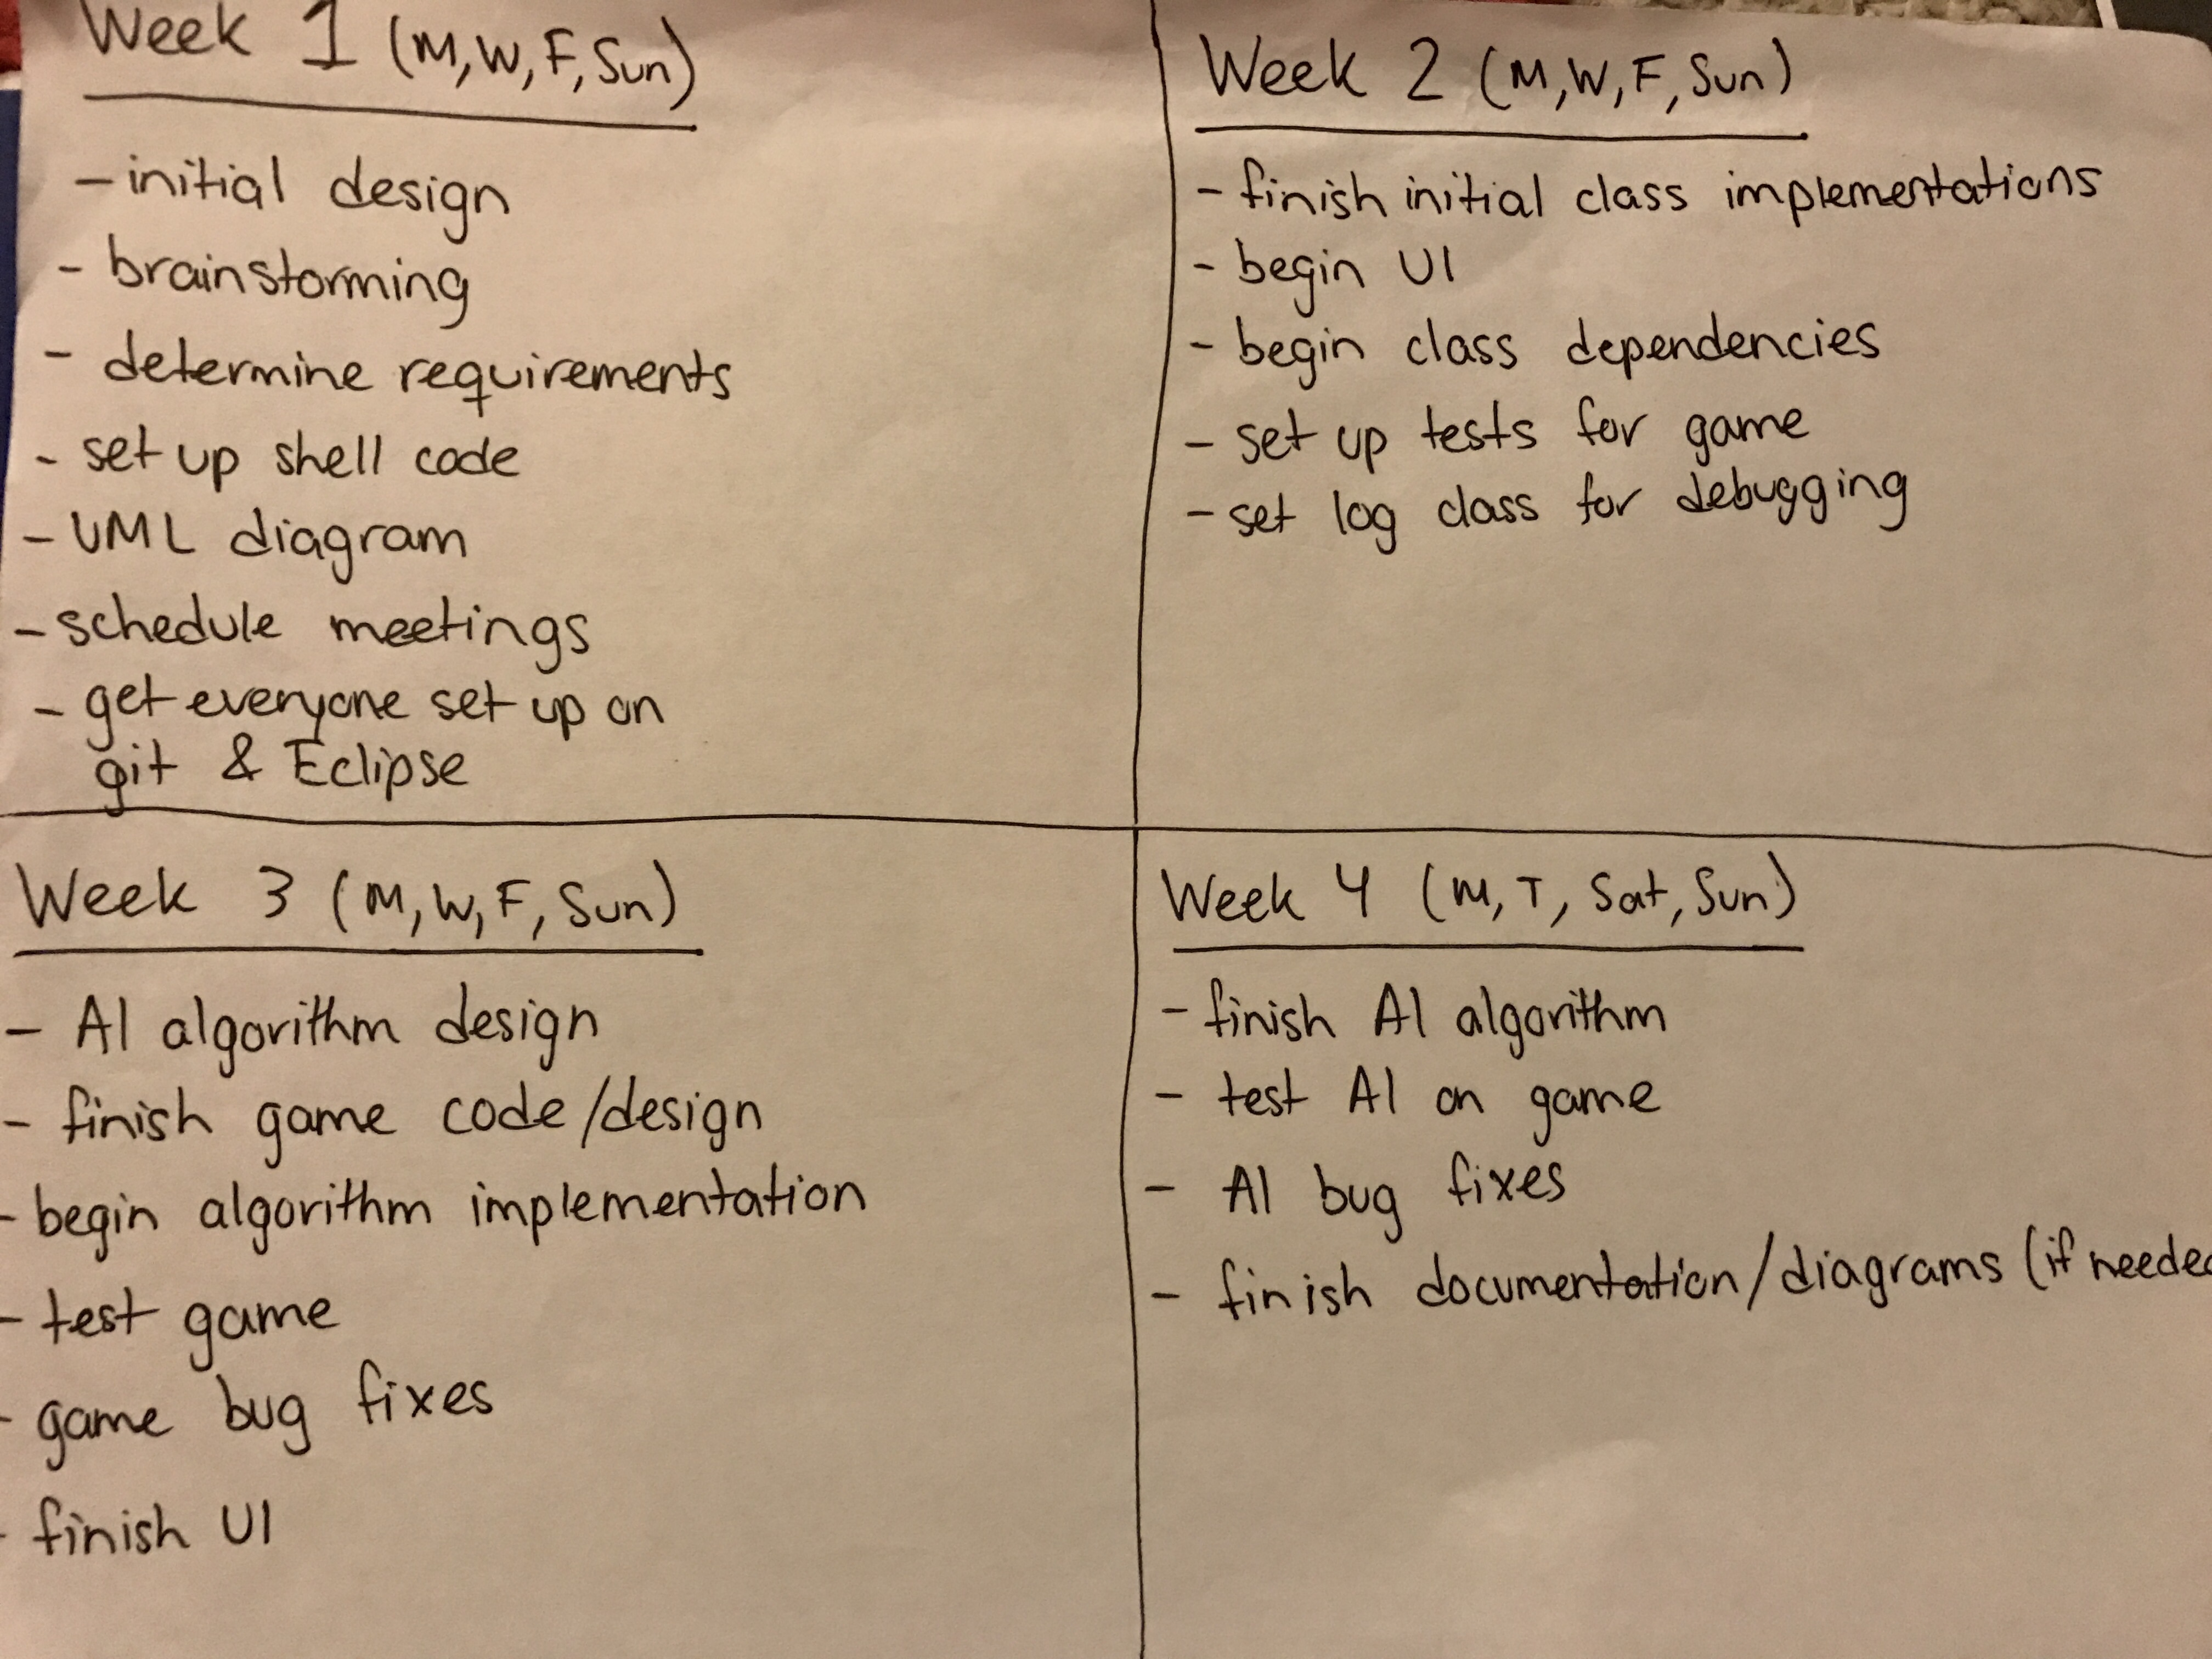 Week 1 (M, W, F, Sun)
- initial design
- brainstorming
- determine requirements
- set up shell code
- UML diagram
- schedule meetings
- get everyone set up on
git & Eclipse
Week 2 (M, W, F, Sun)
- finish initial class implementations
- begin UI
- begin class dependencies
- set up tests for game
- set log class for debugging
Week 3 (M, W, F, Sun)
- AI algorithm design
- finish game code/design
- begin algorithm implementation
- test game
- game bug fixes
- finish UI
Week 4 (M, T, Sat, Sun)
- finish AI algorithm
- test AI on game
- AI bug fixes
- finish documentation/diagrams (if neede